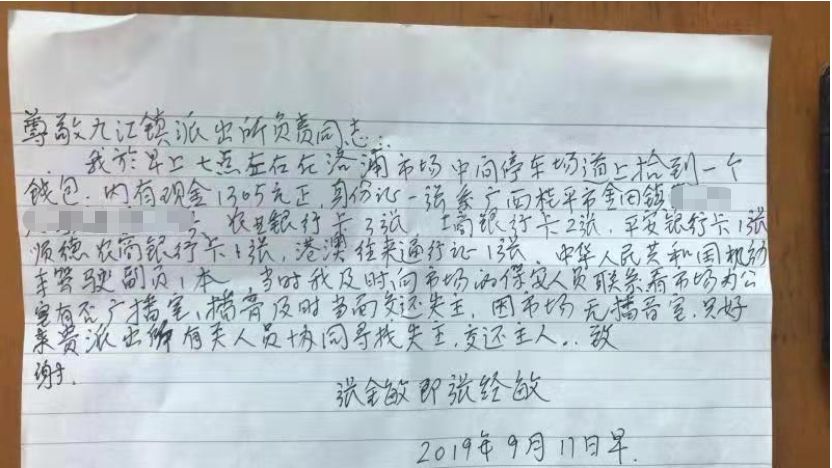 尊敬九江镇派出所负责同志:
我於早上七点左右在洛浦市场中间停车场道上拾到一个
钱包.内有现金1305元正,身份证一张系广西桂平市金田镇
农业银行卡3张,工商银行卡2张,平安银行卡1张
顺德农商银行卡1张,港澳往来通行证1张,中华人民共和国机动
车驾驶副页1本,当时我及时向市场的保安人员联系看市场办公
室有否广播室,播音及时当面交还失主,因市场无播音室,只好
来贵派出所有关人员协同寻找失主,交还主人..致
谢.
张金敏即张经敏
2019年9月11日早.